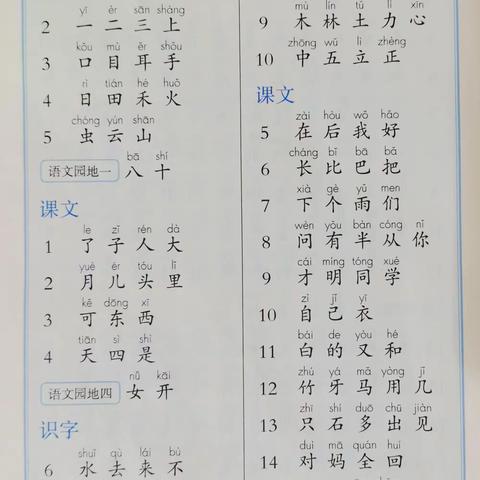 yī èr sān shàng
2 一 二 三 上
kǒu mù ěr shǒu
3 口 目 耳 手
rì tián hé huǒ
4 日 田 禾 火
chóng yún shān
5 虫 云 山
bā shí
语文园地一 八 十
课文
le zǐ rén dà
1 了 子 人 大
yuè ér tóu lǐ
2 月 儿 头 里
kě dōng xī
3 可 东 西
tiān sì shì
4 天 四 是
nǚ kāi
语文园地四 女 开
识字
shuǐ qù lái bù
6 水 去 来 不
mù lín tǔ lì xīn
9 木 林 土 力 心
zhōng wǔ lì zhèng
10 中 五 立 正
课文
zài hòu wǒ hǎo
5 在 后 我 好
cháng bǐ bā bǎ
6 长 比 巴 把
xià gè yǔ men
7 下 个 雨 们
wèn yǒu bàn cóng nǐ
8 问 有 半 从 你
cái míng tóng xué
9 才 明 同 学
zì jǐ yī
10 自 己 衣
bái de yòu hé
11 白 的 又 和
zhú yá mǎ yòng jǐ
12 竹 牙 马 用 几
zhǐ shí duō chū jiàn
13 只 石 多 出 见
duì mā quán huí
14 对 妈 全 回